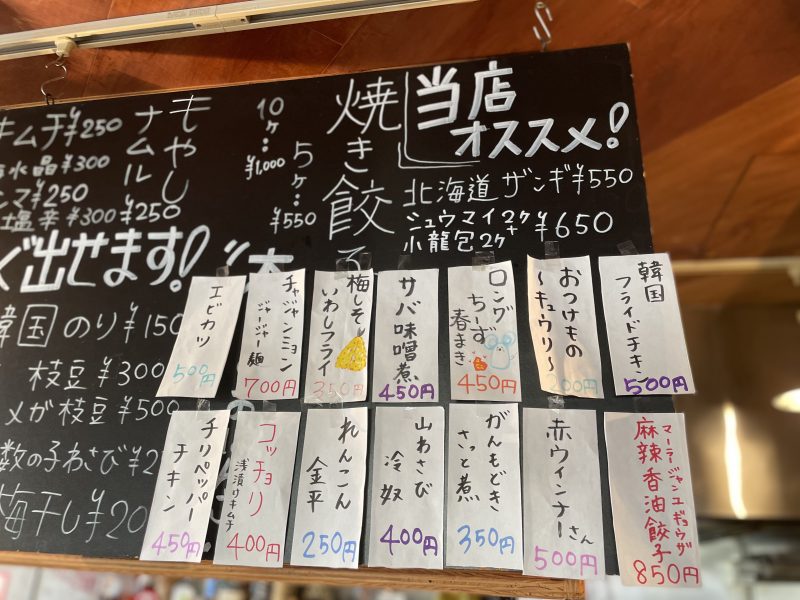 当店
オススメ!
北海道 ザンギ¥550
シュウマイ2ケ+
小龍包2ケ ¥650
焼き餃子
5ケ:
¥550
10ケ:
¥1,000
もやし
ナムル
¥250
キムチ¥250
水晶¥300
¥250
塩辛¥300
出せます!
韓国のり¥150
枝豆¥300
メガ枝豆¥500
数の子わさび
梅干し
韓国
フライドチキン
500円
おつけもの
~キュウリ~
200円
ロング
ちーず
春まき
450円
サバ味噌煮
450円
梅しそ
いわしフライ
350円
チャジャンミョン
ジャージャー麺
700円
エビカツ
500円
マーラージャンユギョウザ
麻辣香油餃子
850円
赤ウィンナーさん
500円
がんもどき
さっと煮
350円
山わさび
冷奴
400円
れんこん
金平
250円
コッチョリ
浅漬けキムチ
400円
チリペッパー
チキン
450円